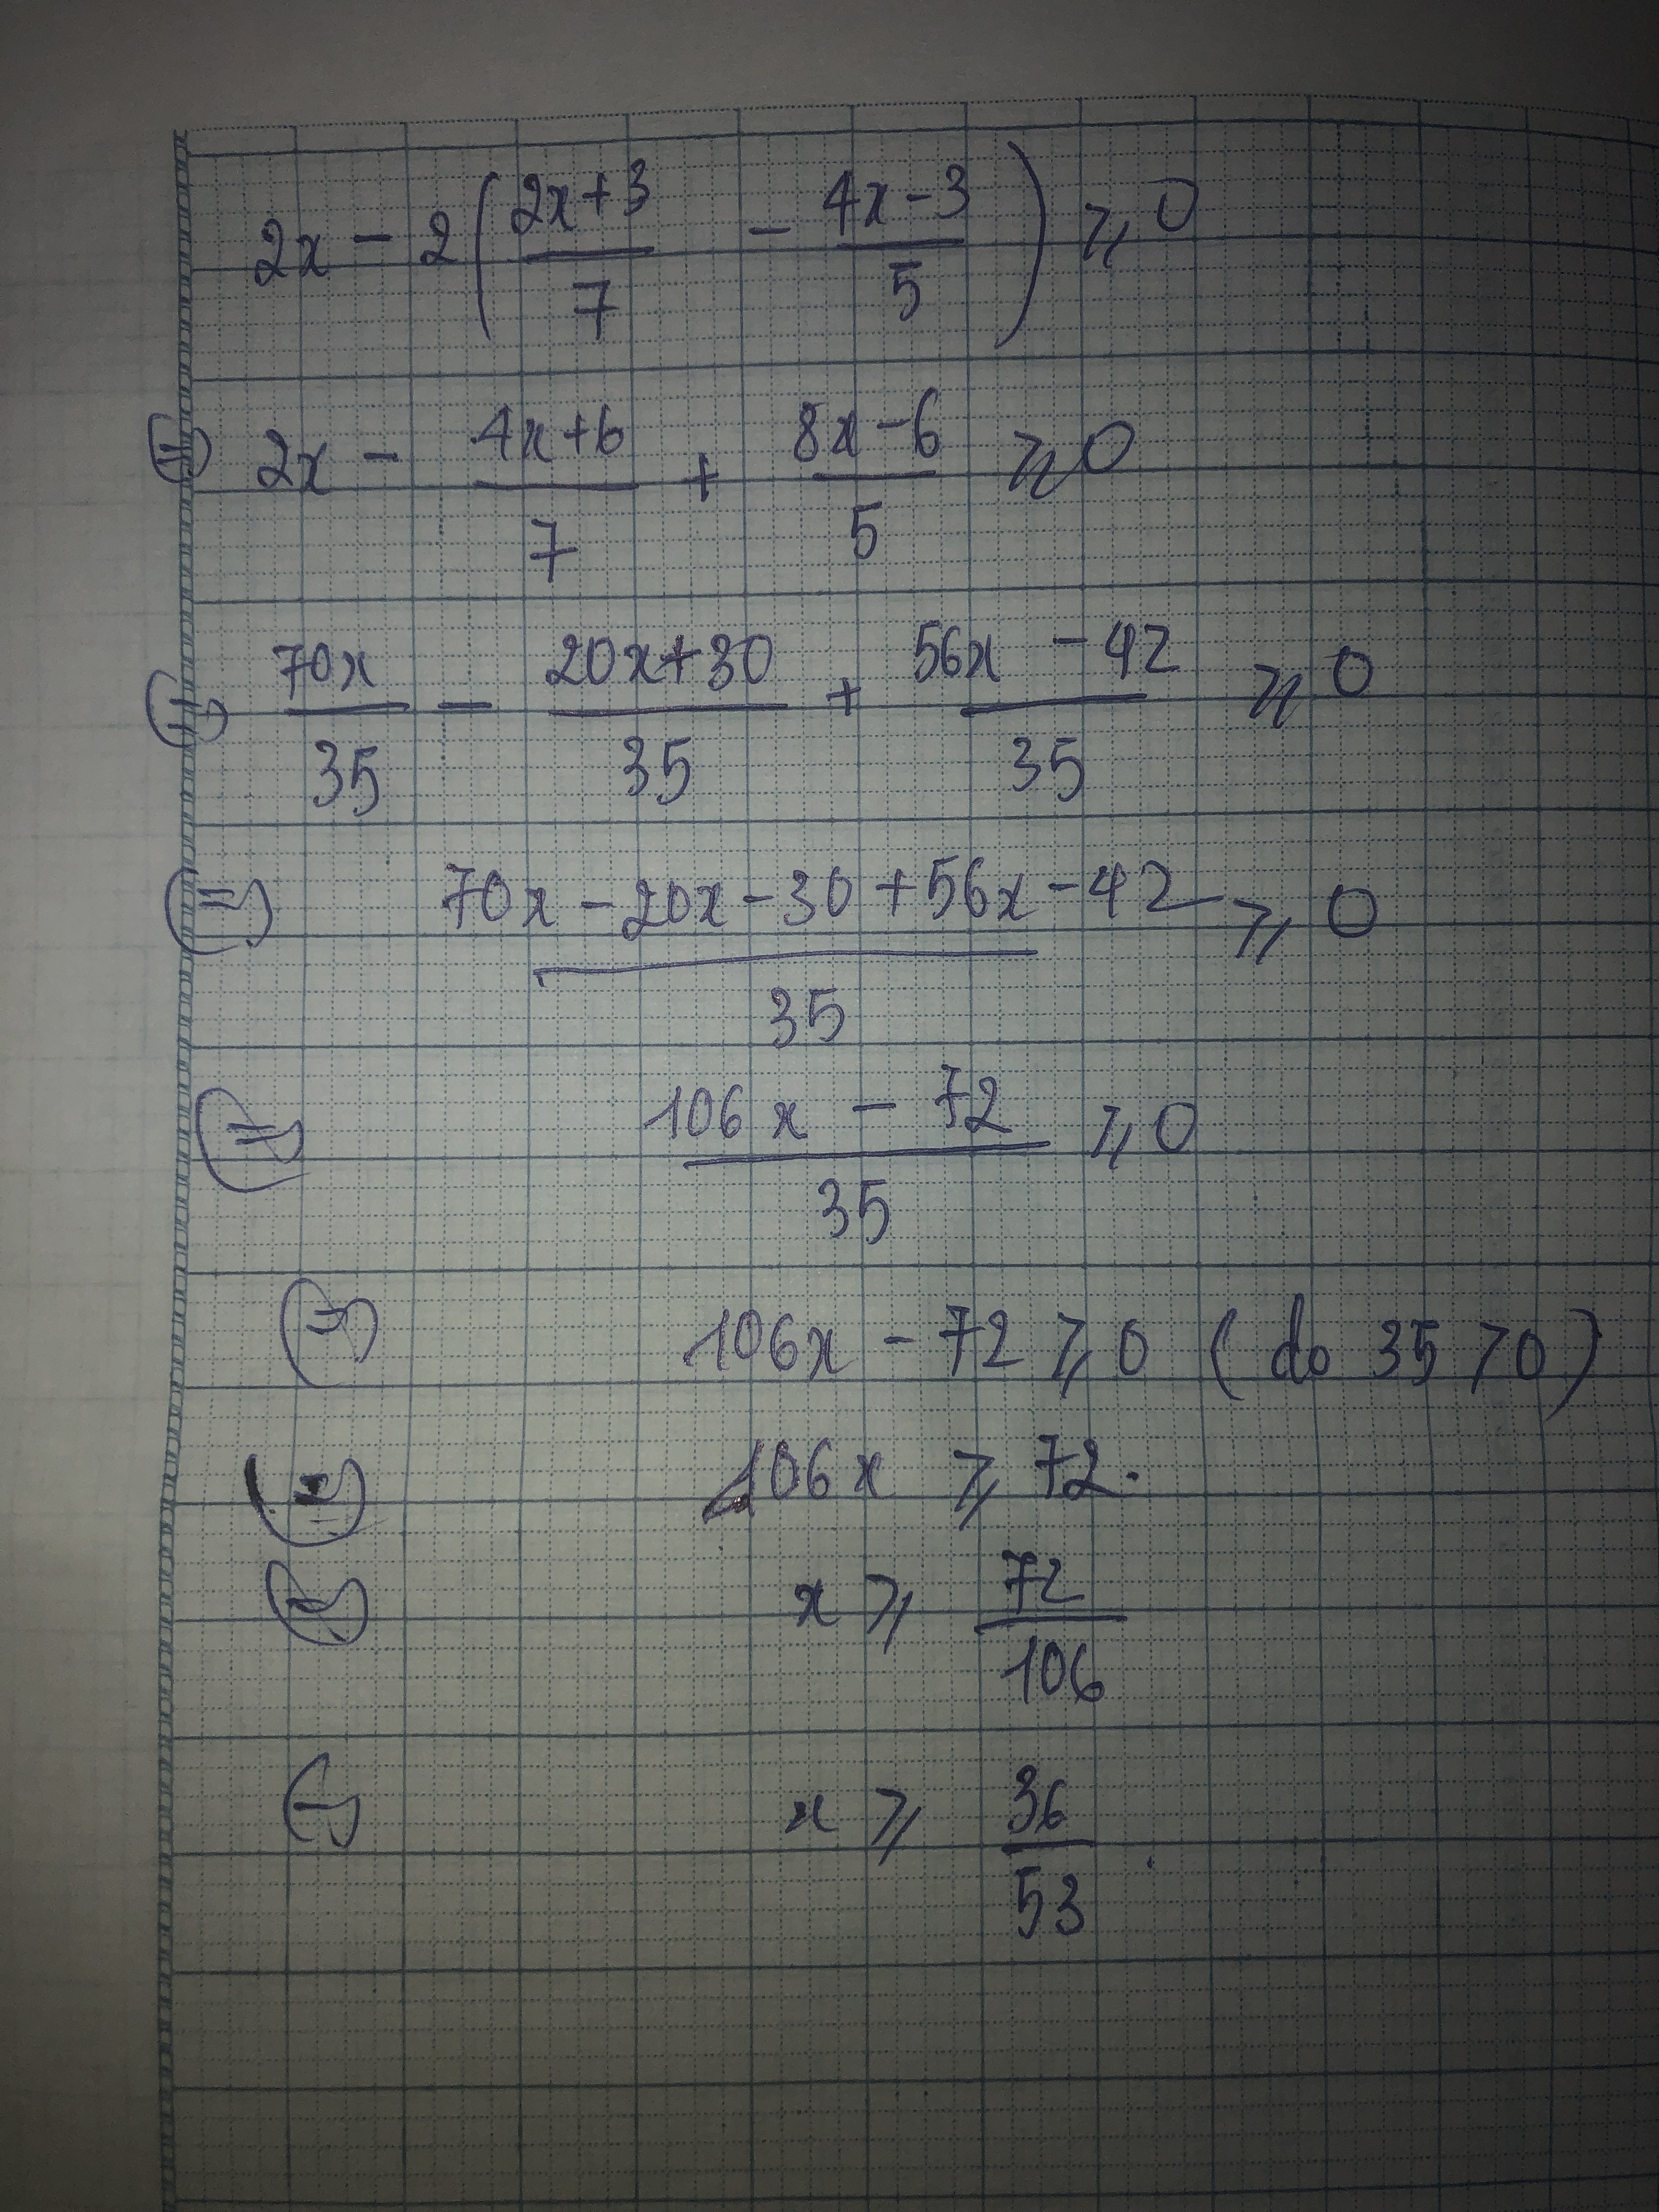 2x - 2(\frac{2x+3}{7} - \frac{4x-3}{5}) ⩾ 0
(=) 2x - \frac{4x+6}{7} + \frac{8x-6}{5} ⩾ 0
(=) \frac{70x}{35} - \frac{20x+30}{35} + \frac{56x-42}{35} ⩾ 0
(=) \frac{70x-20x-30+56x-42}{35} ⩾ 0
(=) \frac{106x-72}{35} ⩾ 0
(=) 106x - 72 ⩾ 0 (do 35 > 0)
(=) 106x ⩾ 72.
(=) x ⩾ \frac{72}{106}
(=) x ⩾ \frac{36}{53}